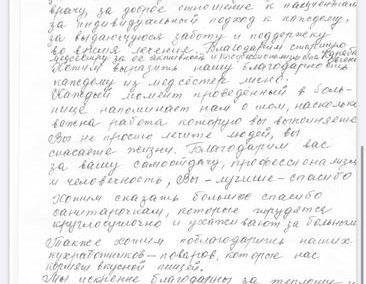 врачу, за доброе отношение к пациентам
за индивидуальный подход к каждому,
за выдающуюся заботу и поддержку
во время лечения. Благодарим старшую
медсестру за ее активность и
Хотим выразить нашу благодарность
каждому из медсестер лично.
Каждый момент проведённый в боль-
нице напоминает нам о том, насколько
важна работа которую вы выполняете
Вы не просто лечите людей, вы
спасаете жизни. Благодарим вас
за вашу самоотдачу, профессионализм
и человечность, Вы - лучшие - спасибо
Хотим сказать большое спасибо
санитарочкам, которые трудятся
круглосуточно и ухаживают за больными
Также хотим поблагодарить наших
кухработников - поваров, которые нас
кормят вкусной пищей.
Мы искренне благодарны за теплоту и